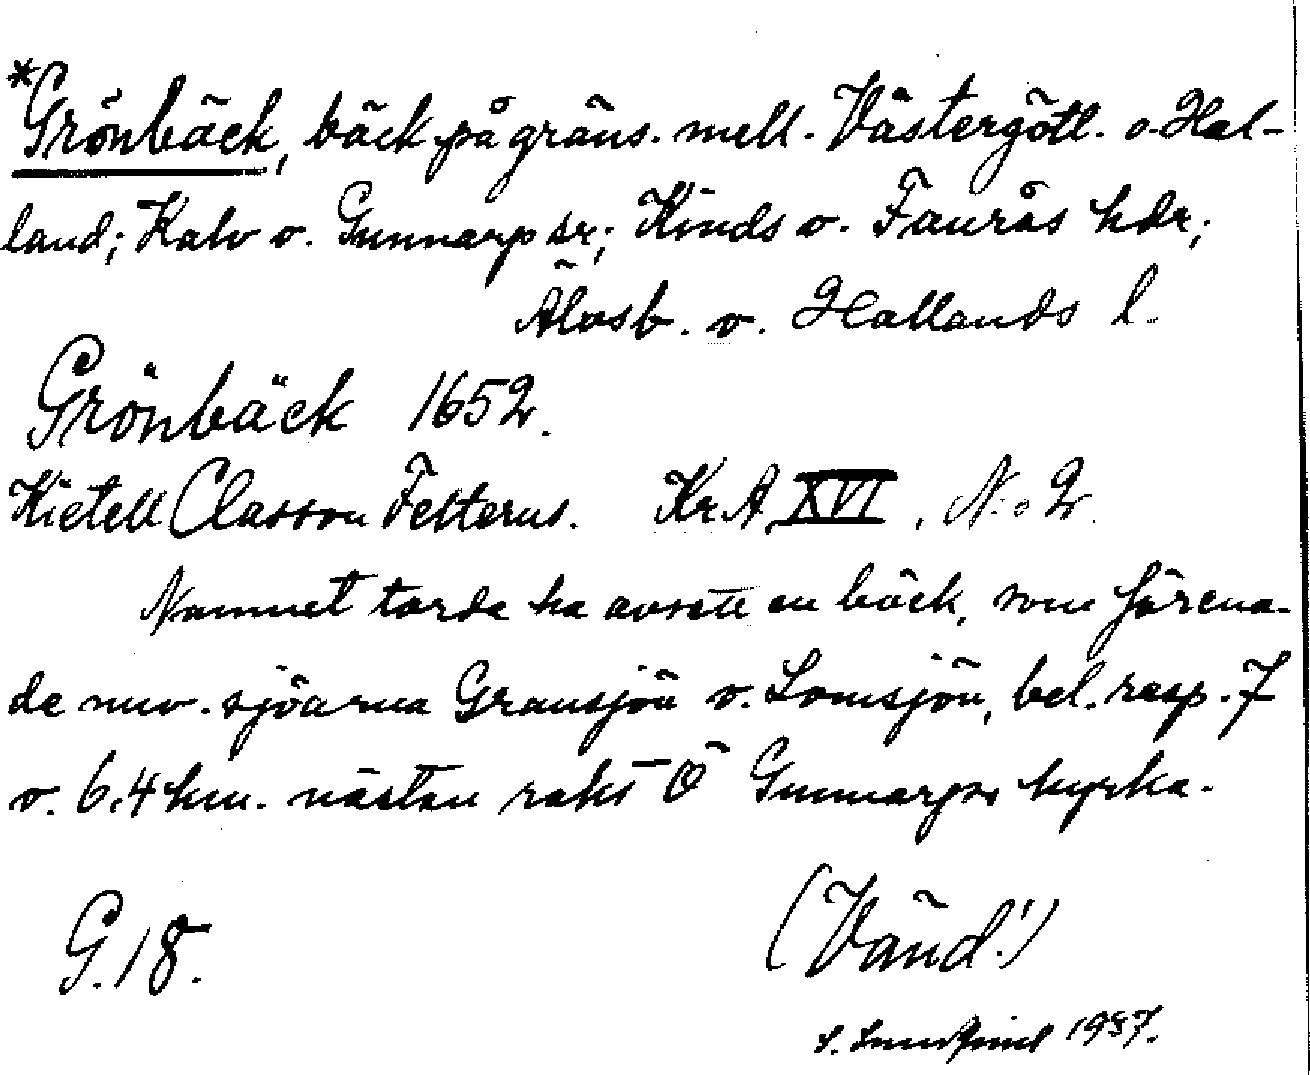 *Grönbäck, bäck på gräns. mell. Västergötl. o. Hal-
land; Kalv o. Gunnarp sr; Kinds o. Faurås hdr;
Älvsb. o. Hallands l.
Grönbäck 1652.
Kietell Classon Felterus. KrA XVI, N:o 2.
Namnet torde ha avsett en bäck, som förena-
de nuv. sjöarna Gransjön o. Lomsjön, bel. resp. 7
o. 6.4 km. nästan rakt Ö Gunnarps kyrka.
G. 18.
(Vänd!)
1937.